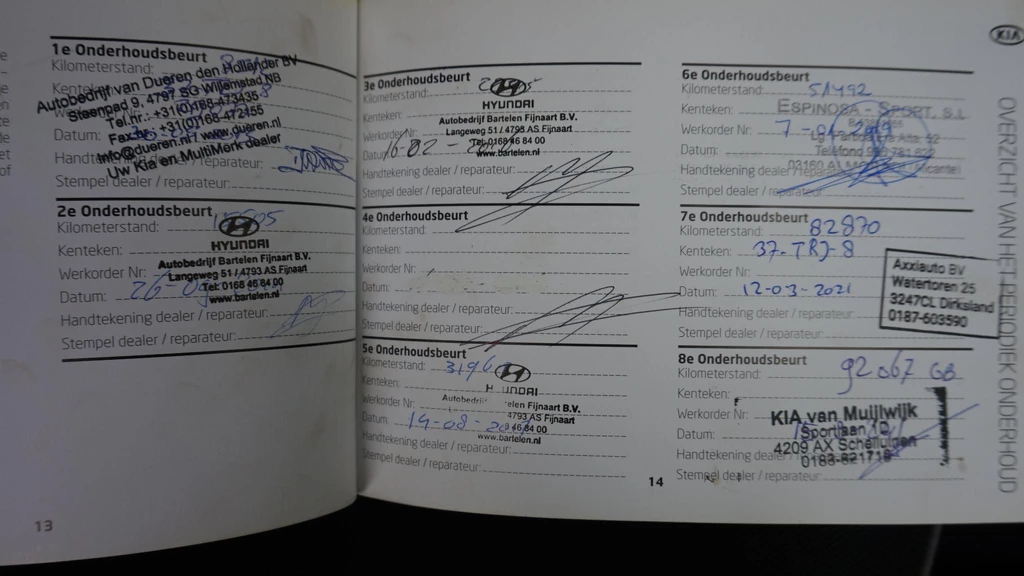 1e Onderhoudsbeurt
Kilometerstand:
Autobedrijf van Dueren den Hollander BV
Steenpad 9, 4797 SG Willemstad NB
Tel.nr.: +31(0)168-473435
Fax.nr.: +31(0)168-472155
info@dueren.nl / www.dueren.nl
Uw Kia en MultiMerk dealer
Datum:
Stempel dealer / reparateur:
2e Onderhoudsbeurt
Kilometerstand:
HYUNDAI
Kenteken:
Autobedrijf Bartelen Fijnaart B.V.
Werkorder Nr:
Langeweg 51 / 4793 AS Fijnaart
Tel: 0168 46 84 00
Datum: 26-0
www.bartelen.nl
Handtekening dealer / reparateur:
Stempel dealer / reparateur:
13
3e Onderhoudsbeurt
Kilometerstand:
HYUNDAI
Kenteken:
Autobedrijf Bartelen Fijnaart B.V.
Werkorder Nr
Langeweg 51 / 4793 AS Fijnaart
Tel: 0168 46 84 00
Datum 16-02-
www.bartelen.nl
Handtekening dealer / reparateur:
Stempel dealer / reparateur:
4e Onderhoudsbeurt
Kilometerstand:
Kenteken:
Werkorder Nr:
Datum:
Handtekening dealer / reparateur:
Stempel dealer / reparateur:
5e Onderhoudsbeurt
Kilometerstand:
HYUNDAI
Kenteken:
Autobedrijf Bartelen Fijnaart B.V.
Werkorder Nr:
4793 AS Fijnaart
46 84 00
Datum: 14-08-
www.bartelen.nl
Handtekening dealer / reparateur:
Stempel dealer / reparateur:
14
6e Onderhoudsbeurt
Kilometerstand: 51492
Kenteken: ESPINOSA - SPORT, S.L
Werkorder Nr:
Datum:
Handtekening dealer
Stempel dealer / reparateur:
7e Onderhoudsbeurt
Kilometerstand: 82870
Kenteken: 37-TRJ-8
Werkorder Nr:
Datum: 12-03-2021
Handtekening dealer / reparateur:
Stempel dealer / reparateur:
Axxiauto BV
Watertoren 25
3247CL Dirksland
0187-603590
8e Onderhoudsbeurt
Kilometerstand: 92067 GB
Kenteken:
Werkorder Nr:
KIA van Muijlwijk
Datum:
Sportlaan 1D
4209 AX Schelluinen
Handtekening dealer
0183-621718
Stempel dealer / reparateur:
KIA
OVERZICHT VAN HET PERIODIEK ONDERHOUD